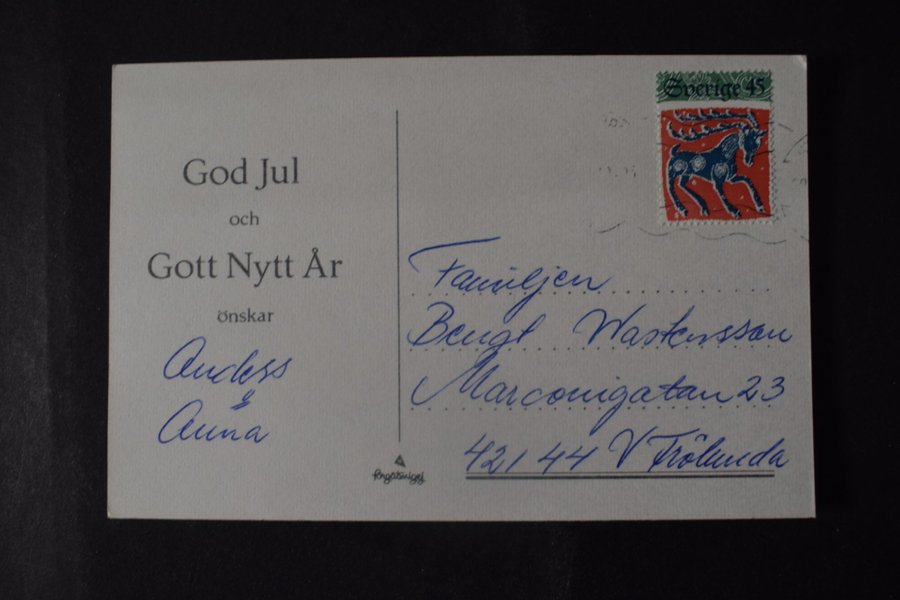 God Jul
och
Gott Nytt År
önskar
Anders
&
Anna
Sverige 45
Familjen
Bengt
Marconigatan 23
421 44 V Frölunda